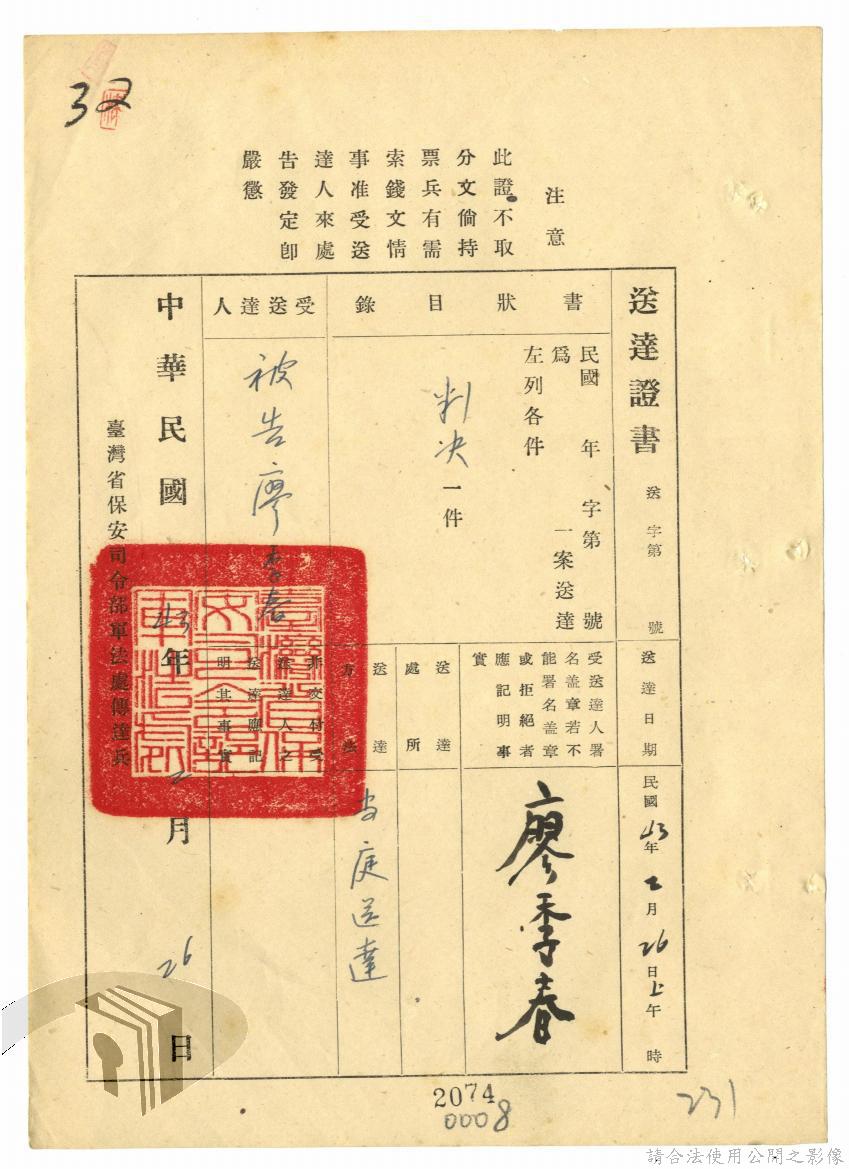 32
注意
此證不取
分文倘持
票兵有需
索錢文情
事准受送
達人來處
告發定卽
嚴懲
送達證書 送字第 號
書狀目錄
民國 年 字第 號
爲 一案送達
左列各件
判决一件
受送達人
被告廖季春
送達日期
民國43年2月26日上午 時
受送達人署
名蓋章若不
能署名蓋章
或拒絕者
應記明事
實
廖季春
送達處所
送達方法
當庭送達
非交付受
送達人之
送達應記
明其事實
中華民國43年2月26日
臺灣省保安司令部軍法處傳達兵
2074
0008
231
請合法使用公開之影像